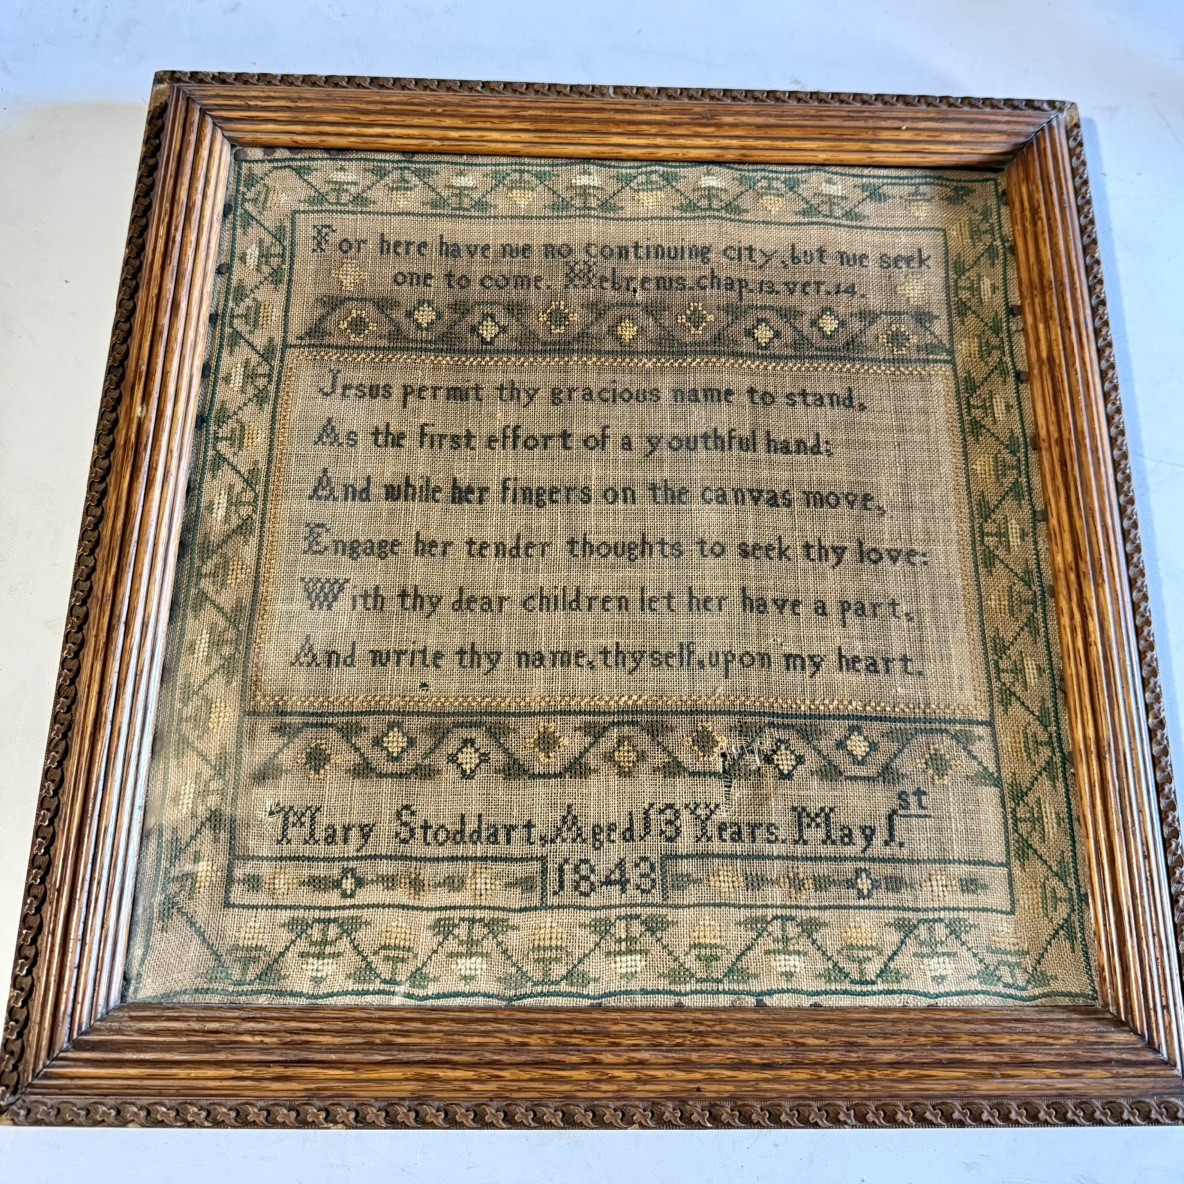 For here have we no continuing city, but we seek
one to come. Hebrews. chap. 13. ver. 14.
Jesus permit thy gracious name to stand,
As the first effort of a youthful hand;
And while her fingers on the canvas move,
Engage her tender thoughts to seek thy love:
With thy dear children let her have a part,
And write thy name, thyself, upon my heart.
Mary Stoddart, Aged 13 Years. May 1.st
1843